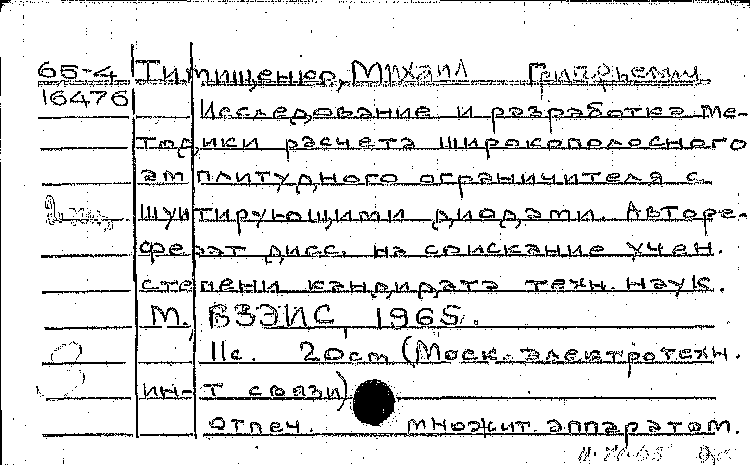 65-4 Тимищенко, Михаил Григорьевич
16476 Исследование и разработка ме-
тодики расчета широкополосного
амплитудного ограничителя с
шунтирующими диодами. Авторе-
ферат дисс. на соискание учен.
степени кандидата техн. наук.
М., ВЗЭИС, 1965.
11с. 20см (Моск. электротехн.
ин-т связи)
Отпеч. множит. аппаратом.